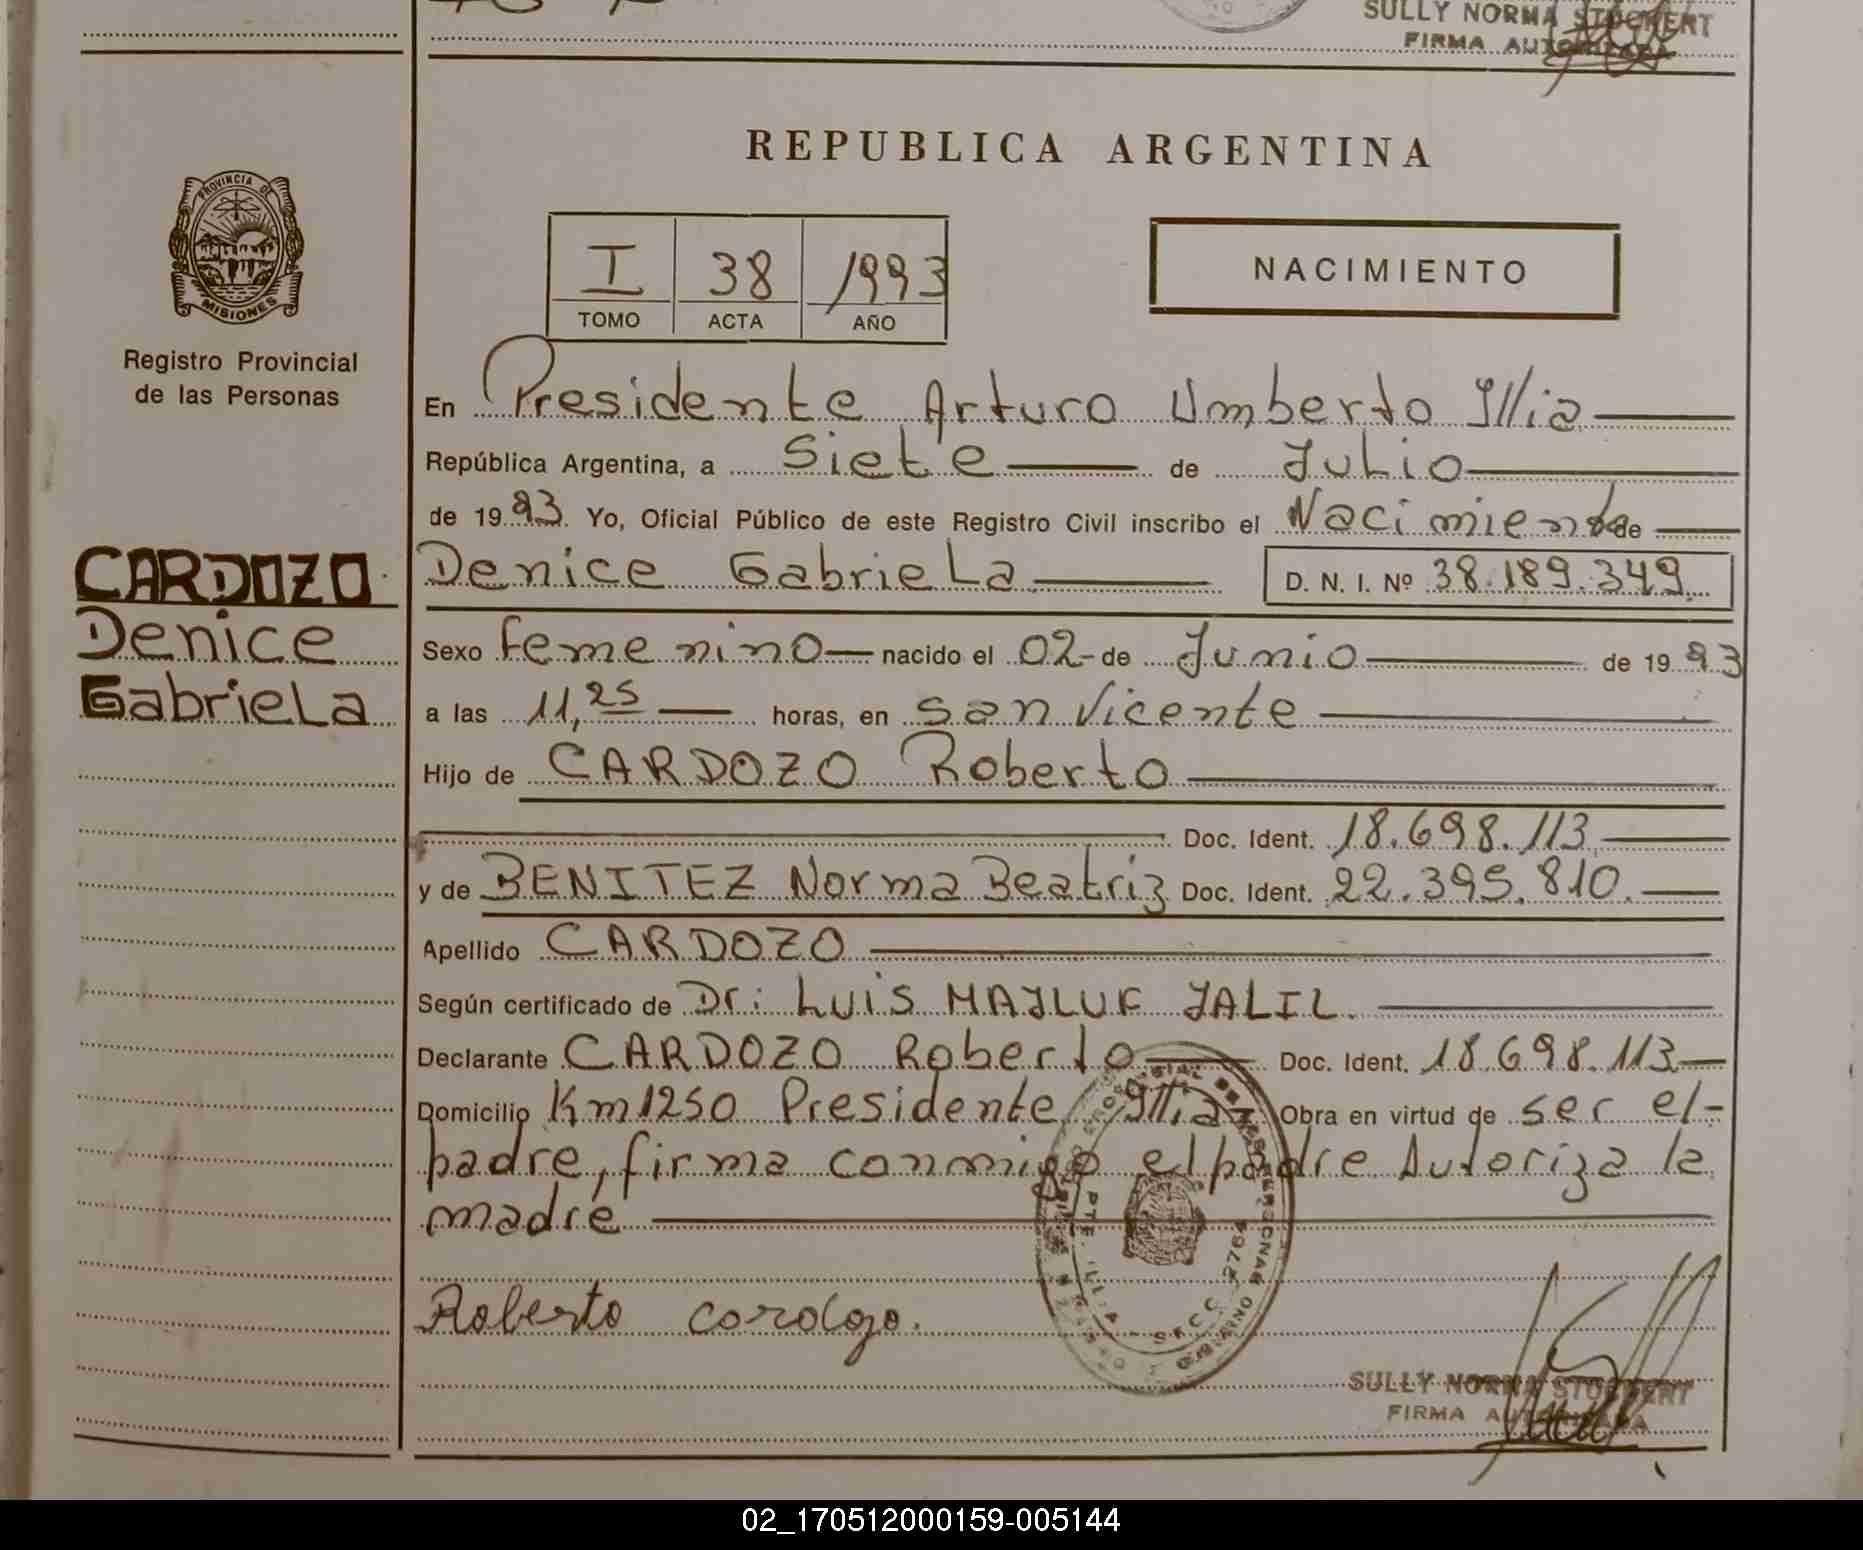 SULLY NORMA STOCKERT
FIRMA AUTORIZADA
REPUBLICA ARGENTINA
PROVINCIA DE
MISIONES
Registro Provincial
de las Personas
I 38 1993
TOMO ACTA AÑO
NACIMIENTO
En Presidente Arturo Umberto Illia
República Argentina, a Siete de Julio
de 1993. Yo, Oficial Público de este Registro Civil inscribo el Nacimiento de
CARDOZO
Denice
Gabriela
Denice Gabriela D. N. I. Nº 38.189.349
Sexo femenino nacido el 02-de Junio de 1993
a las 11,25 horas, en San Vicente
Hijo de CARDOZO Roberto
Doc. Ident. 18.698.113
y de BENITEZ Norma Beatriz Doc. Ident. 22.395.810.
Apellido CARDOZO
Según certificado de Dr: LUIS MAJLUF JALIL.
Declarante CARDOZO Roberto Doc. Ident. 18.698.113
Domicilio Km 1250 Presidente Illia Obra en virtud de ser el-
padre, firma conmigo el padre Autoriza la
madre
Roberto cordozo.
PTE. ILLIA SECC. 2764
SULLY NORMA STOCKERT
FIRMA AUTORIZADA
02_170512000159-005144